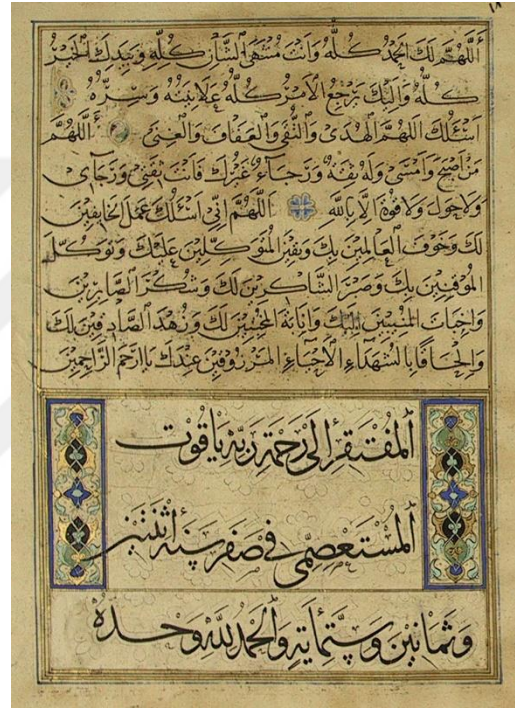 اَللّٰهُمَّ لَكَ الْحَمْدُ كُلُّهُ وَاَنْتَ مُنْتَهَى الشَّاْنِ كُلِّهِ وَبِيَدِكَ الْخَيْرُ
كُلُّهُ وَاِلَيْكَ يَرْجِعُ الْاَمْرُ كُلُّهُ عَلَانِيَتُهُ وَسِرُّهُ
اَسْئَلُكَ اللّٰهُمَّ الْهُدٰى وَالتُّقٰى وَالْعَفَافَ وَالْغِنٰى اَللّٰهُمَّ
مَنْ اَصْبَحَ وَاَمْسٰى وَلَهُ ثِقَةٌ وَرَجَاءٌ غَيْرُكَ فَاَنْتَ ثِقَتِىْ وَرَجَاىَ
وَلَا حَوْلَ وَلَا قُوَّةَ اِلَّا بِاللّٰهِ اَللّٰهُمَّ اِنِّىْ اَسْئَلُكَ عَمَلَ الْخَائِفِيْنَ
لَكَ وَخَوْفَ الْعَالِمِيْنَ بِكَ وَيَقِيْنَ الْمُتَوَكِّلِيْنَ عَلَيْكَ وَتَوَكُّلَ
الْمُوْقِنِيْنَ بِكَ وَصَبْرَ الشَّاكِرِيْنَ لَكَ وَشُكْرَ الصَّابِرِيْنَ
وَاِخْبَاتَ الْمُنِيْبِيْنَ اِلَيْكَ وَاِنَابَةَ الْمُخْبِتِيْنَ لَكَ وَزُهْدَ الصَّادِقِيْنَ لَكَ
وَالْحَاقًا بِالشُّهَدَاءِ الْاَحْيَاءِ الْمَرْزُوْقِيْنَ عِنْدَكَ يَا اَرْحَمَ الرَّاحِمِيْنَ
اَلْمُفْتَقِرُ اِلٰى رَحْمَةِ رَبِّهِ يَاقُوْت
اَلْمُسْتَعْصِمِىُّ فِىْ صَفَرِ سَنَةِ اثْنَتَيْنِ
وَثَمَانِيْنَ وَسِتَّمِائَةٍ وَالْحَمْدُ لِلّٰهِ وَحْدَهُ